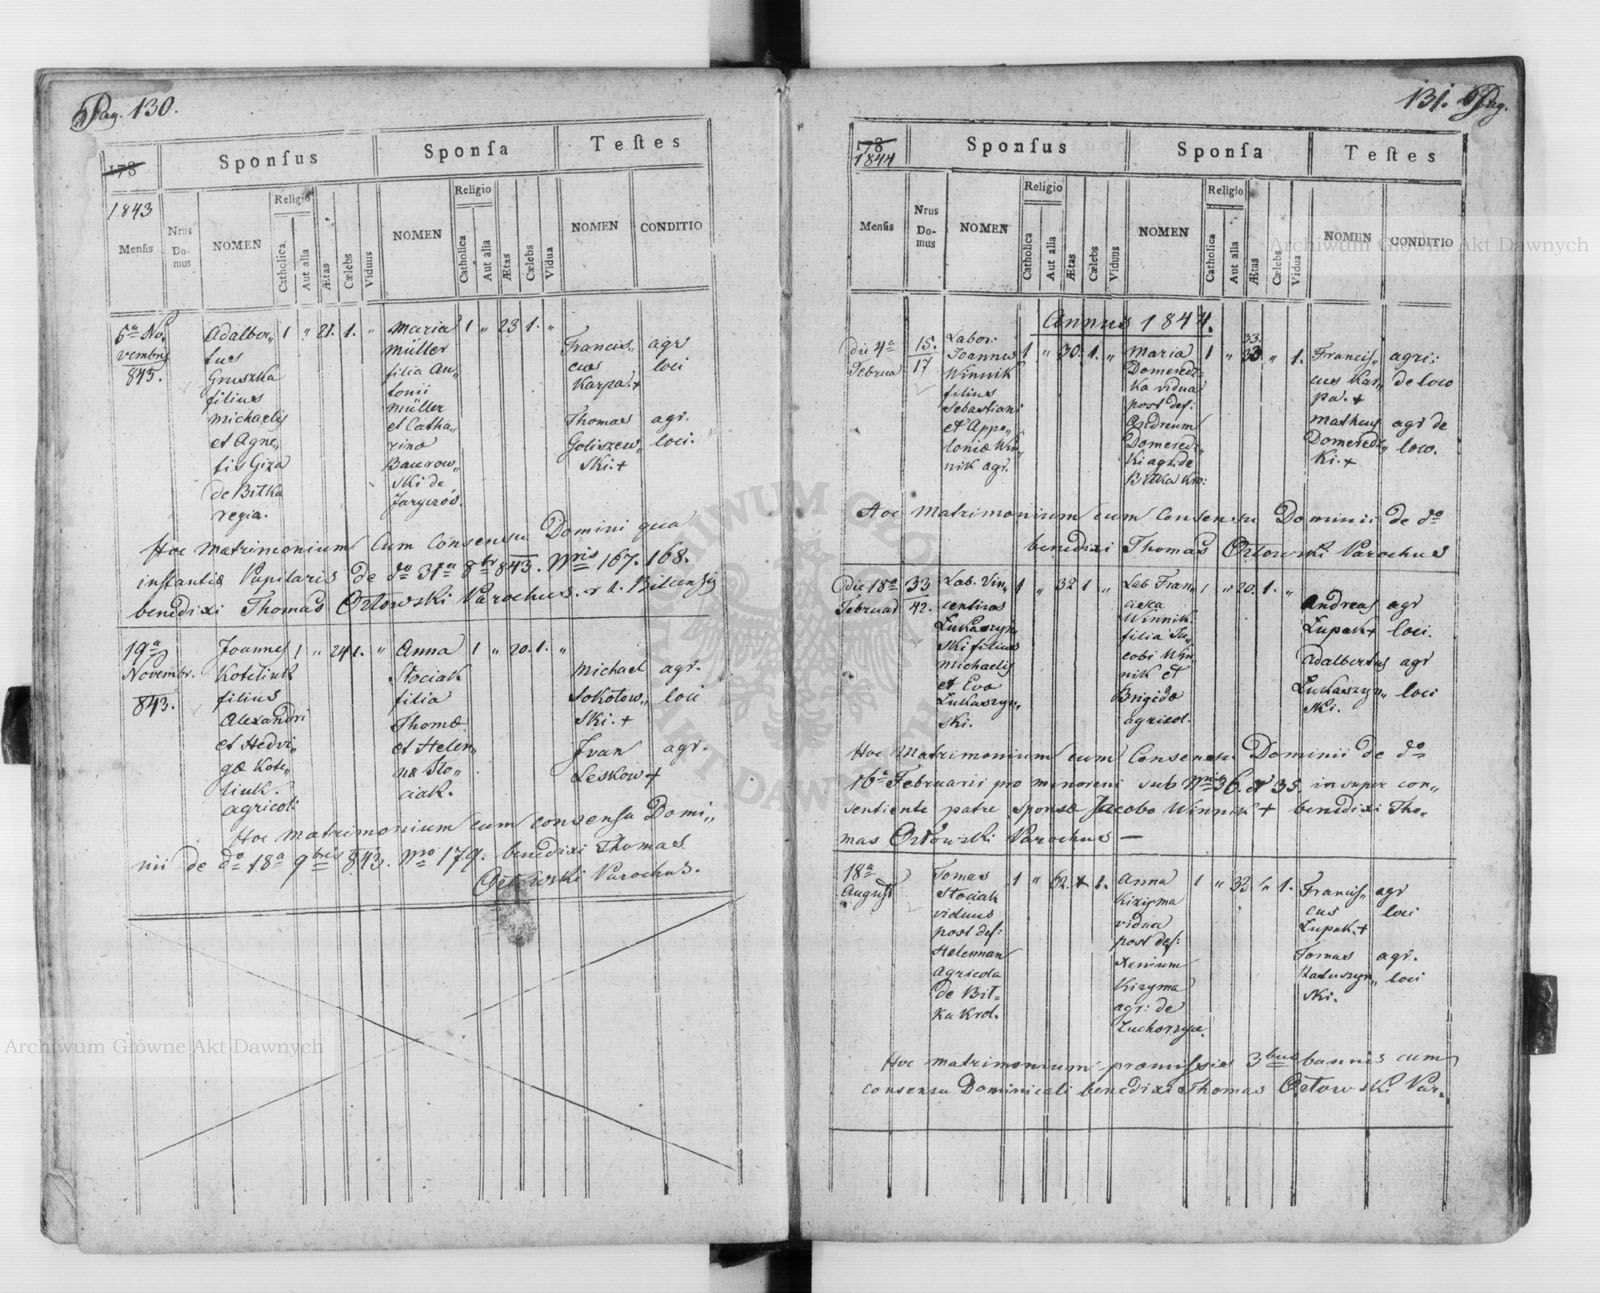 Pag. 130.
178
Sponsus
Sponsa
Testes
1843
Mensis
Nrus Do-mus
NOMEN
Religio
Catholica
Aut alia
Ætas
Cælebs
Viduus
NOMEN
Religio
Catholica
Aut alia
Ætas
Cælebs
Vidua
NOMEN
CONDITIO
5ª No,
vembris
843.
Adalber,,
tus
Gruszka
filius
Michaelis
et Agne,,
tis Giza
de Bitka
regia.
1 " 21. 1. "
Maria
Müller
filia An,,
tonii
Müller
et Catha,
rina
Baurow,,
ski de
Jaryczów.
1 " 23 1. "
Francis,,
cus
Karpa. +
agr
loci
Thomas
Goliszew,,
ski. +
agr.
loci.
Hoc Matrimonium cum consensu Domini qua
instantis Pupilaris de do 31ª 8br 843. Nris 167. 168.
benedixi Thomas Orłowski Parochus. r. l. Bilcensis
19ª
Novembr.
843.
Joannes
Koteliuk
filius
Alexandri
et Hedvi,,
gæ Kote,,
liuk.
agricol.
1 " 24 1. "
Anna
Stociak
filia
Thomæ
et Helen,,
næ Sto,,
ciak.
1 " 20. 1. "
Michael
Sokołow,,
ski. +
agr.
loci
Jvan
Leskow +
agr.
Hoc matrimonium cum consensu Domi,,
nii de do 18ª 9bris 843. Nro 179. benedixi Thomas
Orłowski Parochus.
131. Pag.
178
1844
Sponsus
Sponsa
Testes
Mensis
Nrus Do-mus
NOMEN
Religio
Catholica
Aut alia
Ætas
Cælebs
Viduus
NOMEN
Religio
Catholica
Aut alia
Ætas
Cælebs
Vidua
NOMEN
CONDITIO
Annus 1844.
die 4ª
Februa
15.
17
Labor.
Joannes
Winnik
filius
Sebastiani
et Appo,,
loniæ Win,
nik agr.
1 " 30. 1. "
Maria
Domeredz-
ka vidua
post def:
Andream
Domeredz,,
ki agr. de
Bitka Kro:
33.
1 " " 1.
Francis,,
cus Kar,,
pa. +
agri:
de loco
Matheus
Domeredz,,
ki. +
agr de
loco.
Hoc Matrimonium cum consensu Dominii de do
benedixi Thomas Orłowski Parochus
die 18ª
Februar
33
42.
Lab. Vin,,
centius
Łukaszyn,,
ski filius
Michaelis
et Eva
Łukaszyn,,
ski.
1 " 32 1 "
Lab Fran,,
cisca
Winnik.
filia Ja,,
cobi Win,
nik et
Brigidæ
agricol.
1 " 20. 1. "
Andreas
Łupak +
agr
loci.
Adalbertus
Łukaszyn,,
ski.
agr
loci
Hoc Matrimonium cum Consensu Dominii de do
16ª Februarii pro minoreni sub Nris 36. et 35. insuper con,,
sentiente patre sponsæ Jacobo Winnik + benedixi Tho,
mas Orłowski Parochus —
18ª
August
Tomas
Stociak
viduus
post def:
Helennan
agricola
de Bit=
ka Krol.
1 " 52. + 1.
Anna
Kizyma
vidua
post def:
Xenium
Kizyma
agr: de
Zuchorzyce
1 " 32. " 1.
Francis,,
cus
Łupak. +
agr
loci
Tomas
Kałuszyn,,
ski.
agr.
loci
Hoc matrimonium præmissis 3bus bannis cum
consensu Dominicali benedixi Thomas Orłowski Par.
Archiwum Główne Akt Dawnych
Archiwum Główne Akt Dawnych
ARCHIWUM GŁÓWNE AKT DAWNYCH